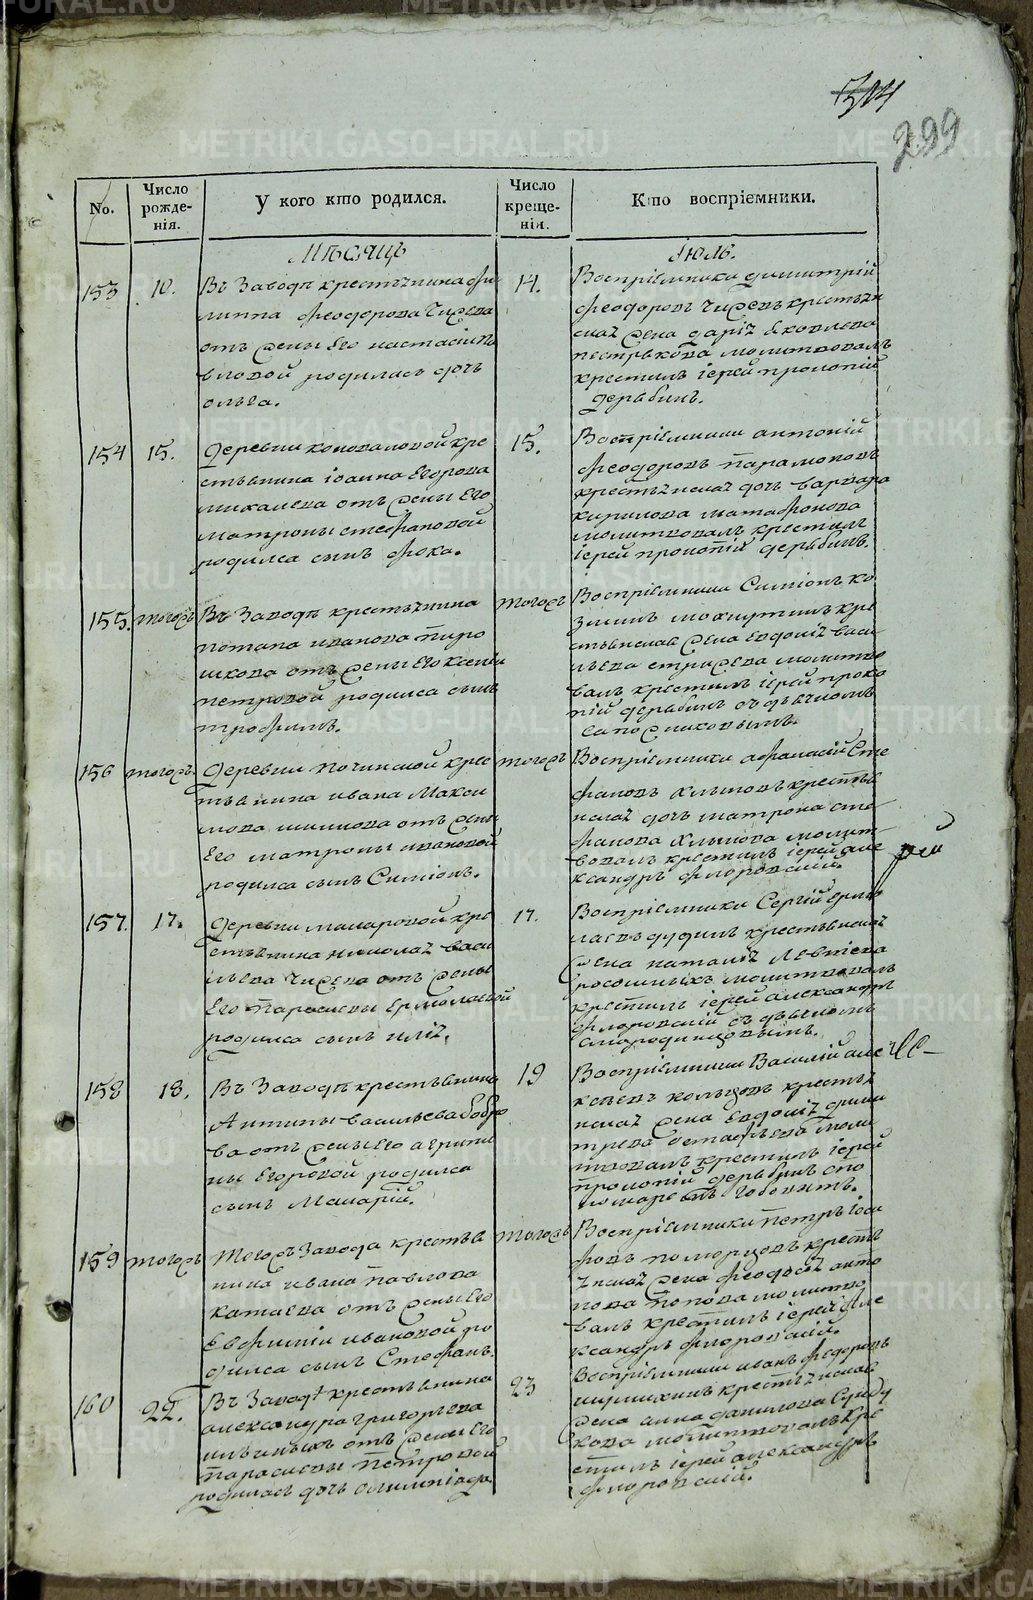 299
No.
Число рожде- нія.
У кого кто родился.
Число креще- нія.
Кто воспріемники.
Мѣсяцъ
Іюль.
153
10.
Въ Заводѣ крестьянина Фи
липпа Феодорова Чижева
отъ жены Его настасіи Па
вловой родилась дочь
ольга.
14.
Воспріемники димитрій
Феодоровъ Чижевъ крестьян
ская жена дарія Яковлева
пестрѣкова молитвовалъ
крестилъ іерей прокопій
дерябинъ.
154
15.
деревни коноваловой кре
стьянина іоанна Егорова
микалева отъ жены Его
матроны стефановой
родился сынъ фока.
15.
Воспріемники антоній
Феодоровъ парамоновъ
крестьянская дочь варвара
кирилова матафонова
молитвовалъ крестилъ
іерей прокопій дерябинъ.
155.
тогожъ
Въ Заводѣ крестьянина
потапа иванова пиро
шкова отъ жены Его ксеніи
петровой родился сынъ
трофимъ.
тогожъ
Воспріемники Симіонъ ко
зминъ кре
стьянская жена Евдокія васи
льева стрижева молитво
валъ крестилъ іерей проко
пій дерябинъ съ дьячкомъ
сапожниковымъ.
156
тогожъ
деревни починской крес
тьянина ивана Макси
мова шишова отъ жены
Его матроны ивановой
родился сынъ Симіонъ.
тогожъ
Воспріемники афанасій Сте
фановъ Хлыновъ крестья
нская дочь матрона сте
фанова Хлынова молит
вовалъ крестилъ іерей але
ксандръ флоровскій.
157.
17.
деревни макаровой кре
стьянина николая васи
льева Чижева отъ жены
Его парасковы Ермолаевой
родился сынъ илія.
17.
Воспріемники Сергій Ермо
лаевъ дудинъ крестьянская
жена наталія Леонтіева
росошныхъ молитвовалъ
крестилъ іерей александръ
флоровскій съ дьячкомъ
смородинцовымъ.
158
18.
Въ Заводѣ крестьянина
Антипы васильева бобро
ва отъ жены Его агрипи
ны Егоровой родился
сынъ Макарій.
19
Воспріемники Василій але
ксѣевъ кольцовъ крестья
нская жена Евдокія дими
тріева Остафьева моли
твовалъ крестилъ іерей
прокопій дерябинъ съ по
номаремъ
159
тогожъ
Тогожъ Завода крестья
нина ивана павлова
катаева отъ жены Его
Евфиміи ивановой ро
дился сынъ Стефанъ.
тогожъ
Воспріемники петръ іоси
фовъ поморцовъ крестья
нская жена феодосія анто
нова попова молитво
валъ крестилъ іерей але
ксандръ флоровскій.
160
22.
Въ Заводѣ крестьянина
александра григорьева
ильиныхъ отъ жены Его
парасковы петровой
родилась дочь олимпіада.
23
Воспріемники иванъ феодоровъ
шулихинъ крестьянская
жена анна данилова Сунду
кова молитвовалъ кре
стилъ іерей александръ
флоровскій.
METRIKI.GASO-URAL.RU